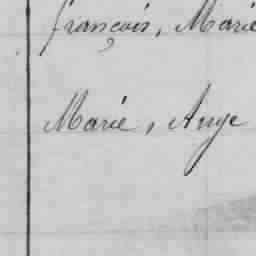 françois, Marie
Marie, Ange